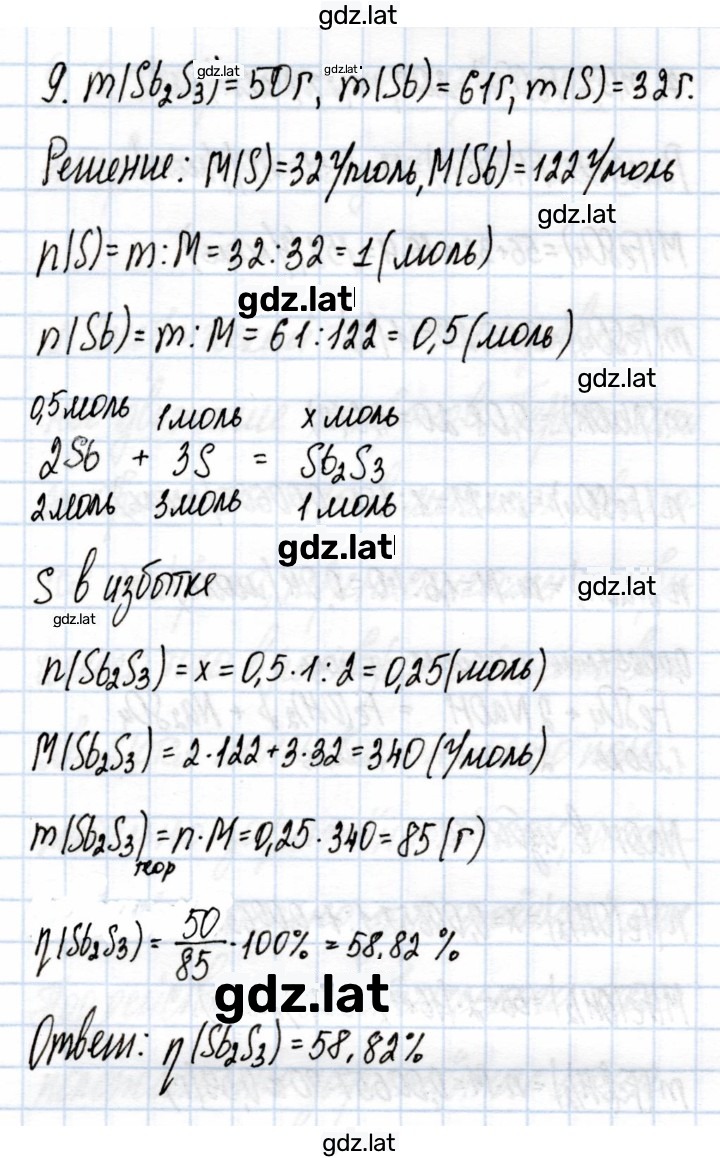 gdz.lat
9. m(Sb₂S₃) = 50г, m(Sb) = 61г, m(S) = 32г.
gdz.lat gdz.lat
Решение: M(S)=32 г/моль, M(Sb) = 122 г/моль
gdz.lat
n(S) = m : M = 32 : 32 = 1 (моль)
gdz.lat
n(Sb) = m : M = 61 : 122 = 0,5 (моль)
gdz.lat
0,5моль 1моль x моль
2Sb + 3S = Sb₂S₃
2моль 3моль 1моль
gdz.lat
S в избытке
gdz.lat
gdz.lat
n(Sb₂S₃) = x = 0,5 · 1 : 2 = 0,25 (моль)
M(Sb₂S₃) = 2 · 122 + 3 · 32 = 340 (г/моль)
m(Sb₂S₃)теор = n · M = 0,25 · 340 = 85 (г)
η(Sb₂S₃) = 50/85 · 100% = 58,82 %
gdz.lat
Ответ: η(Sb₂S₃) = 58,82%
gdz.lat